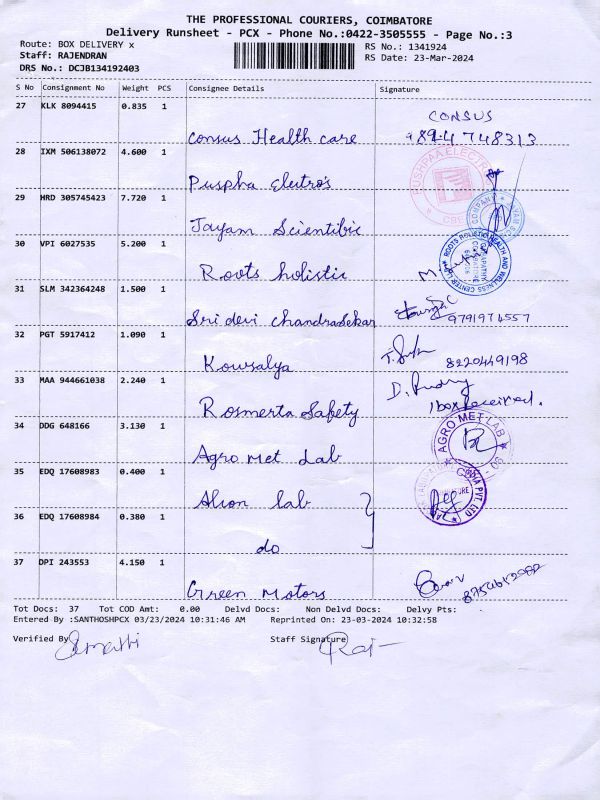 THE PROFESSIONAL COURIERS, COIMBATORE
Delivery Runsheet - PCX - Phone No.:0422-3505555 - Page No.:3
Route: BOX DELIVERY x
RS No.: 1341924
Staff: RAJENDRAN
RS Date: 23-Mar-2024
DRS No.: DCJB134192403
S No Consignment No Weight PCS Consignee Details Signature
27 KLK 8094415 0.835 1
CONSUS
Consus Health care
28 IXM 506138072 4.600 1
Puspha Electro's
29 HRD 305745423 7.720 1
Jayam Scientific
30 VPI 6027535 5.200 1
Roots holistic
ROOTS HOLISTIC HEALTH AND WELLNESS CENTER
31 SLM 342364248 1.500 1
Sri devi Chandrasekar
9791974557
32 PGT 5917412 1.090 1
Kowsalya
8220449198
33 MAA 944661038 2.240 1
Rosmerta Safety
1 box received.
34 DDG 648166 3.130 1
Agro Met Lab
AGRO MET LAB
35 EDQ 17608983 0.400 1
Alion lab
36 EDQ 17608984 0.380 1
do
37 DPI 243553 4.150 1
Green Motors
Tot Docs: 37 Tot COD Amt: 0.00 Delvd Docs: Non Delvd Docs: Delvy Pts:
Entered By :SANTHOSHPCX 03/23/2024 10:31:46 AM Reprinted On: 23-03-2024 10:32:58
Verified By
Staff Signature